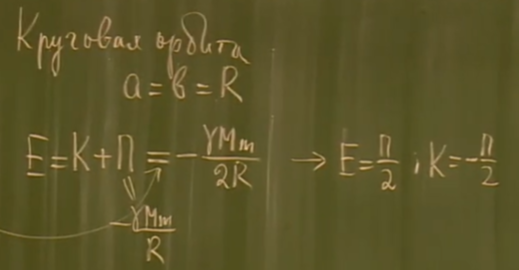 Круговая орбита
a = b = R
E = K + П = - γMm/2R → E = П/2 ; K = - П/2
- γMm/R